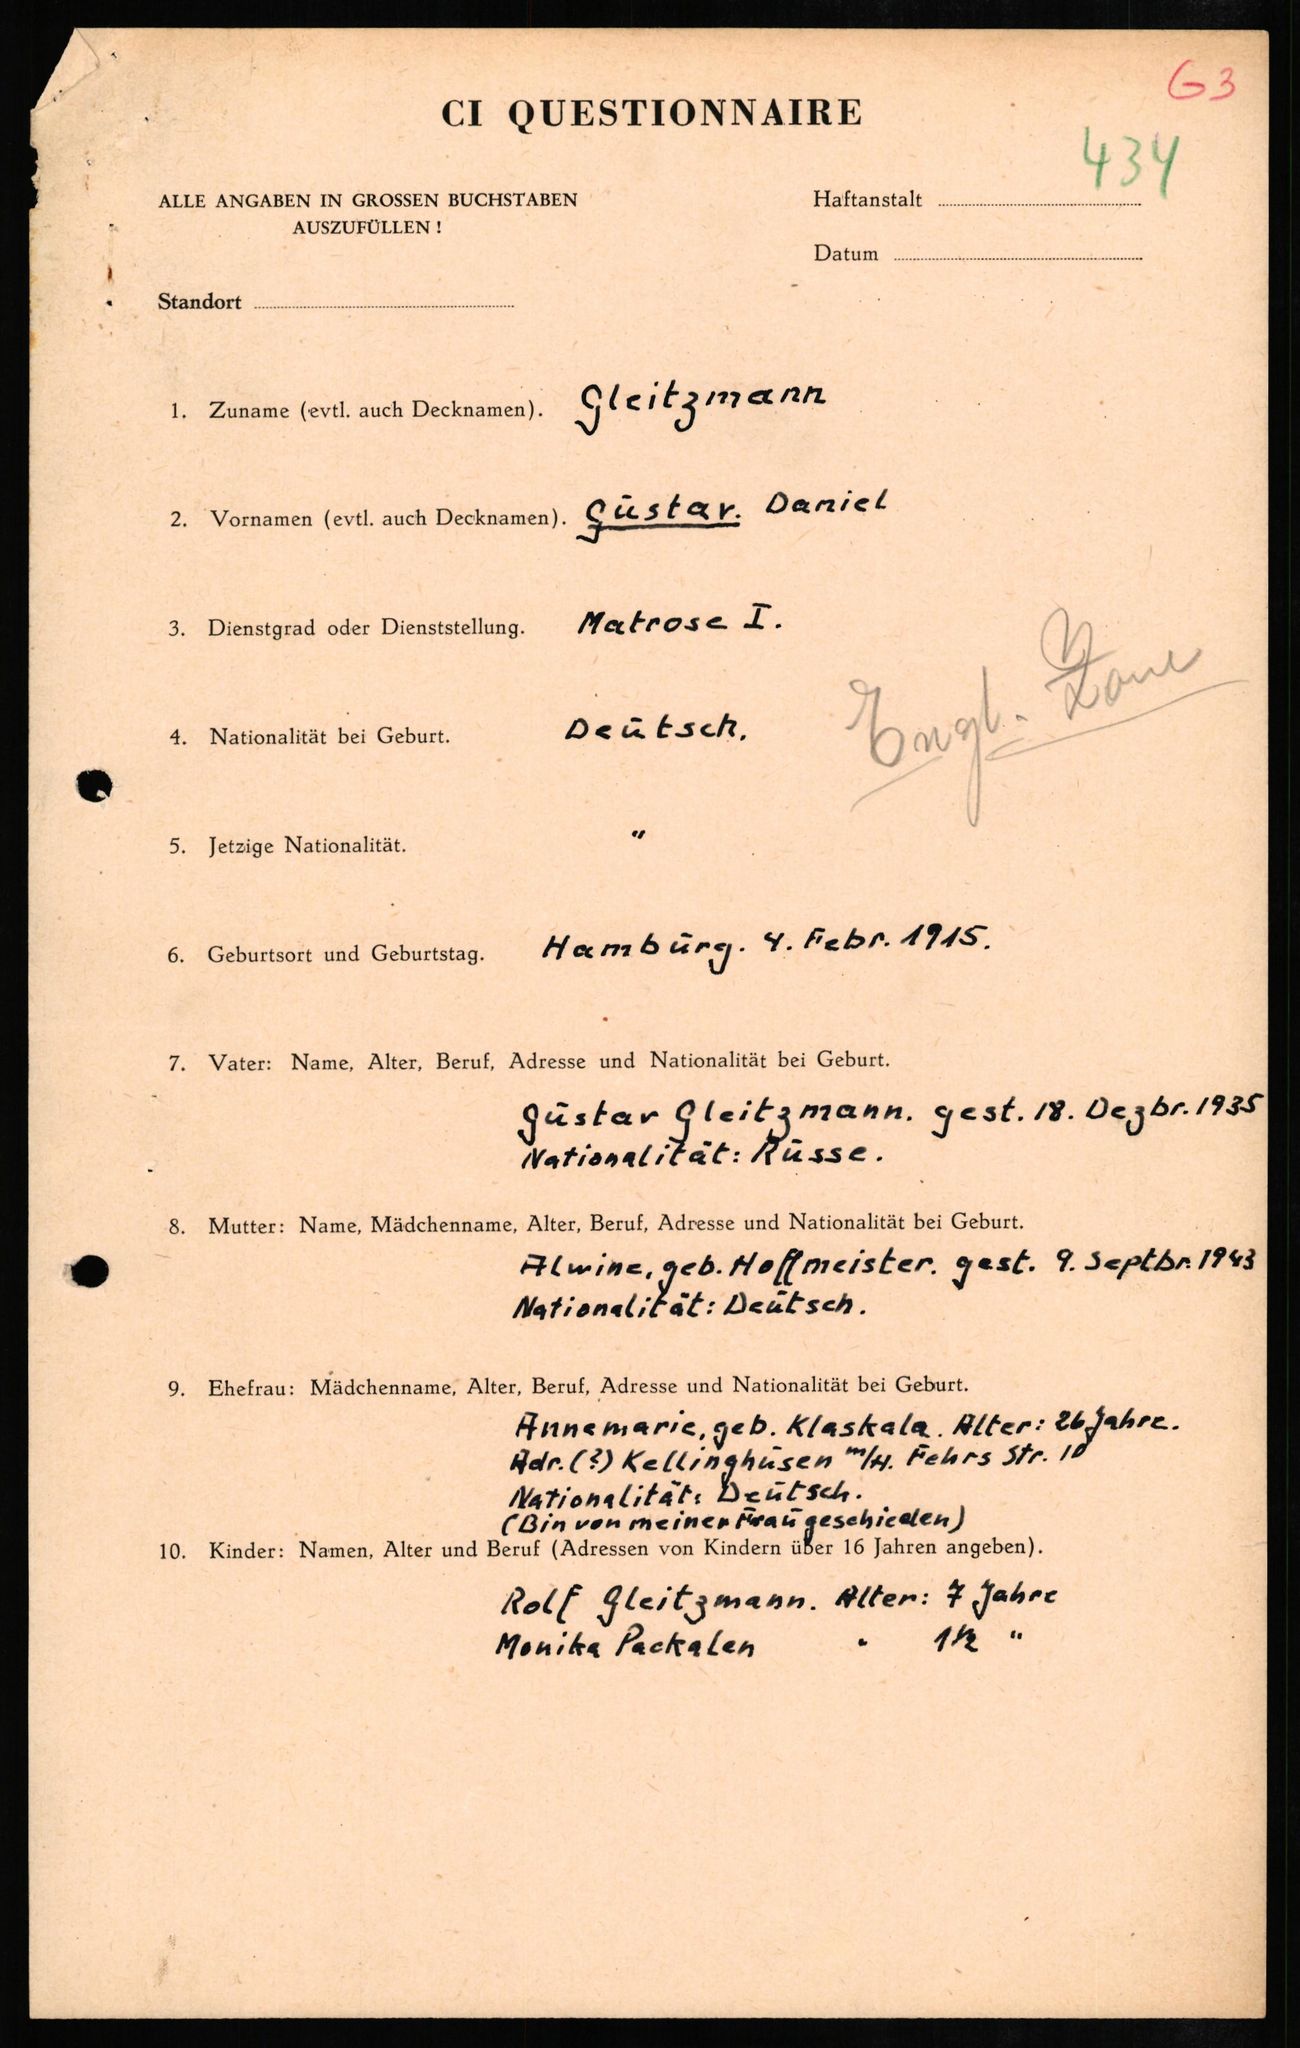 G3
CI QUESTIONNAIRE
434
ALLE ANGABEN IN GROSSEN BUCHSTABEN
AUSZUFÜLLEN!
Haftanstalt
Datum
Standort
1. Zuname (evtl. auch Decknamen). Gleitzmann
2. Vornamen (evtl. auch Decknamen). Gustav. Daniel
3. Dienstgrad oder Dienststellung. Matrose I.
Engl. Zone
4. Nationalität bei Geburt. Deutsch.
5. Jetzige Nationalität. "
6. Geburtsort und Geburtstag. Hamburg. 4. Febr. 1915.
7. Vater: Name, Alter, Beruf, Adresse und Nationalität bei Geburt.
Gustav Gleitzmann. gest. 18. Dezbr. 1935
Nationalität: Russe.
8. Mutter: Name, Mädchenname, Alter, Beruf, Adresse und Nationalität bei Geburt.
Alwine, geb. Hoffmeister. gest. 9. Septbr. 1943
Nationalität: Deutsch.
9. Ehefrau: Mädchenname, Alter, Beruf, Adresse und Nationalität bei Geburt.
Annemarie, geb. Klaskala. Alter: 26 Jahre.
Adr. (?) Kellinghusen m/H. Fehrs Str. 10
Nationalität: Deutsch.
(Bin von meiner Frau geschieden)
10. Kinder: Namen, Alter und Beruf (Adressen von Kindern über 16 Jahren angeben).
Rolf Gleitzmann. Alter: 7 Jahre
Monika Packalen " 1½ "